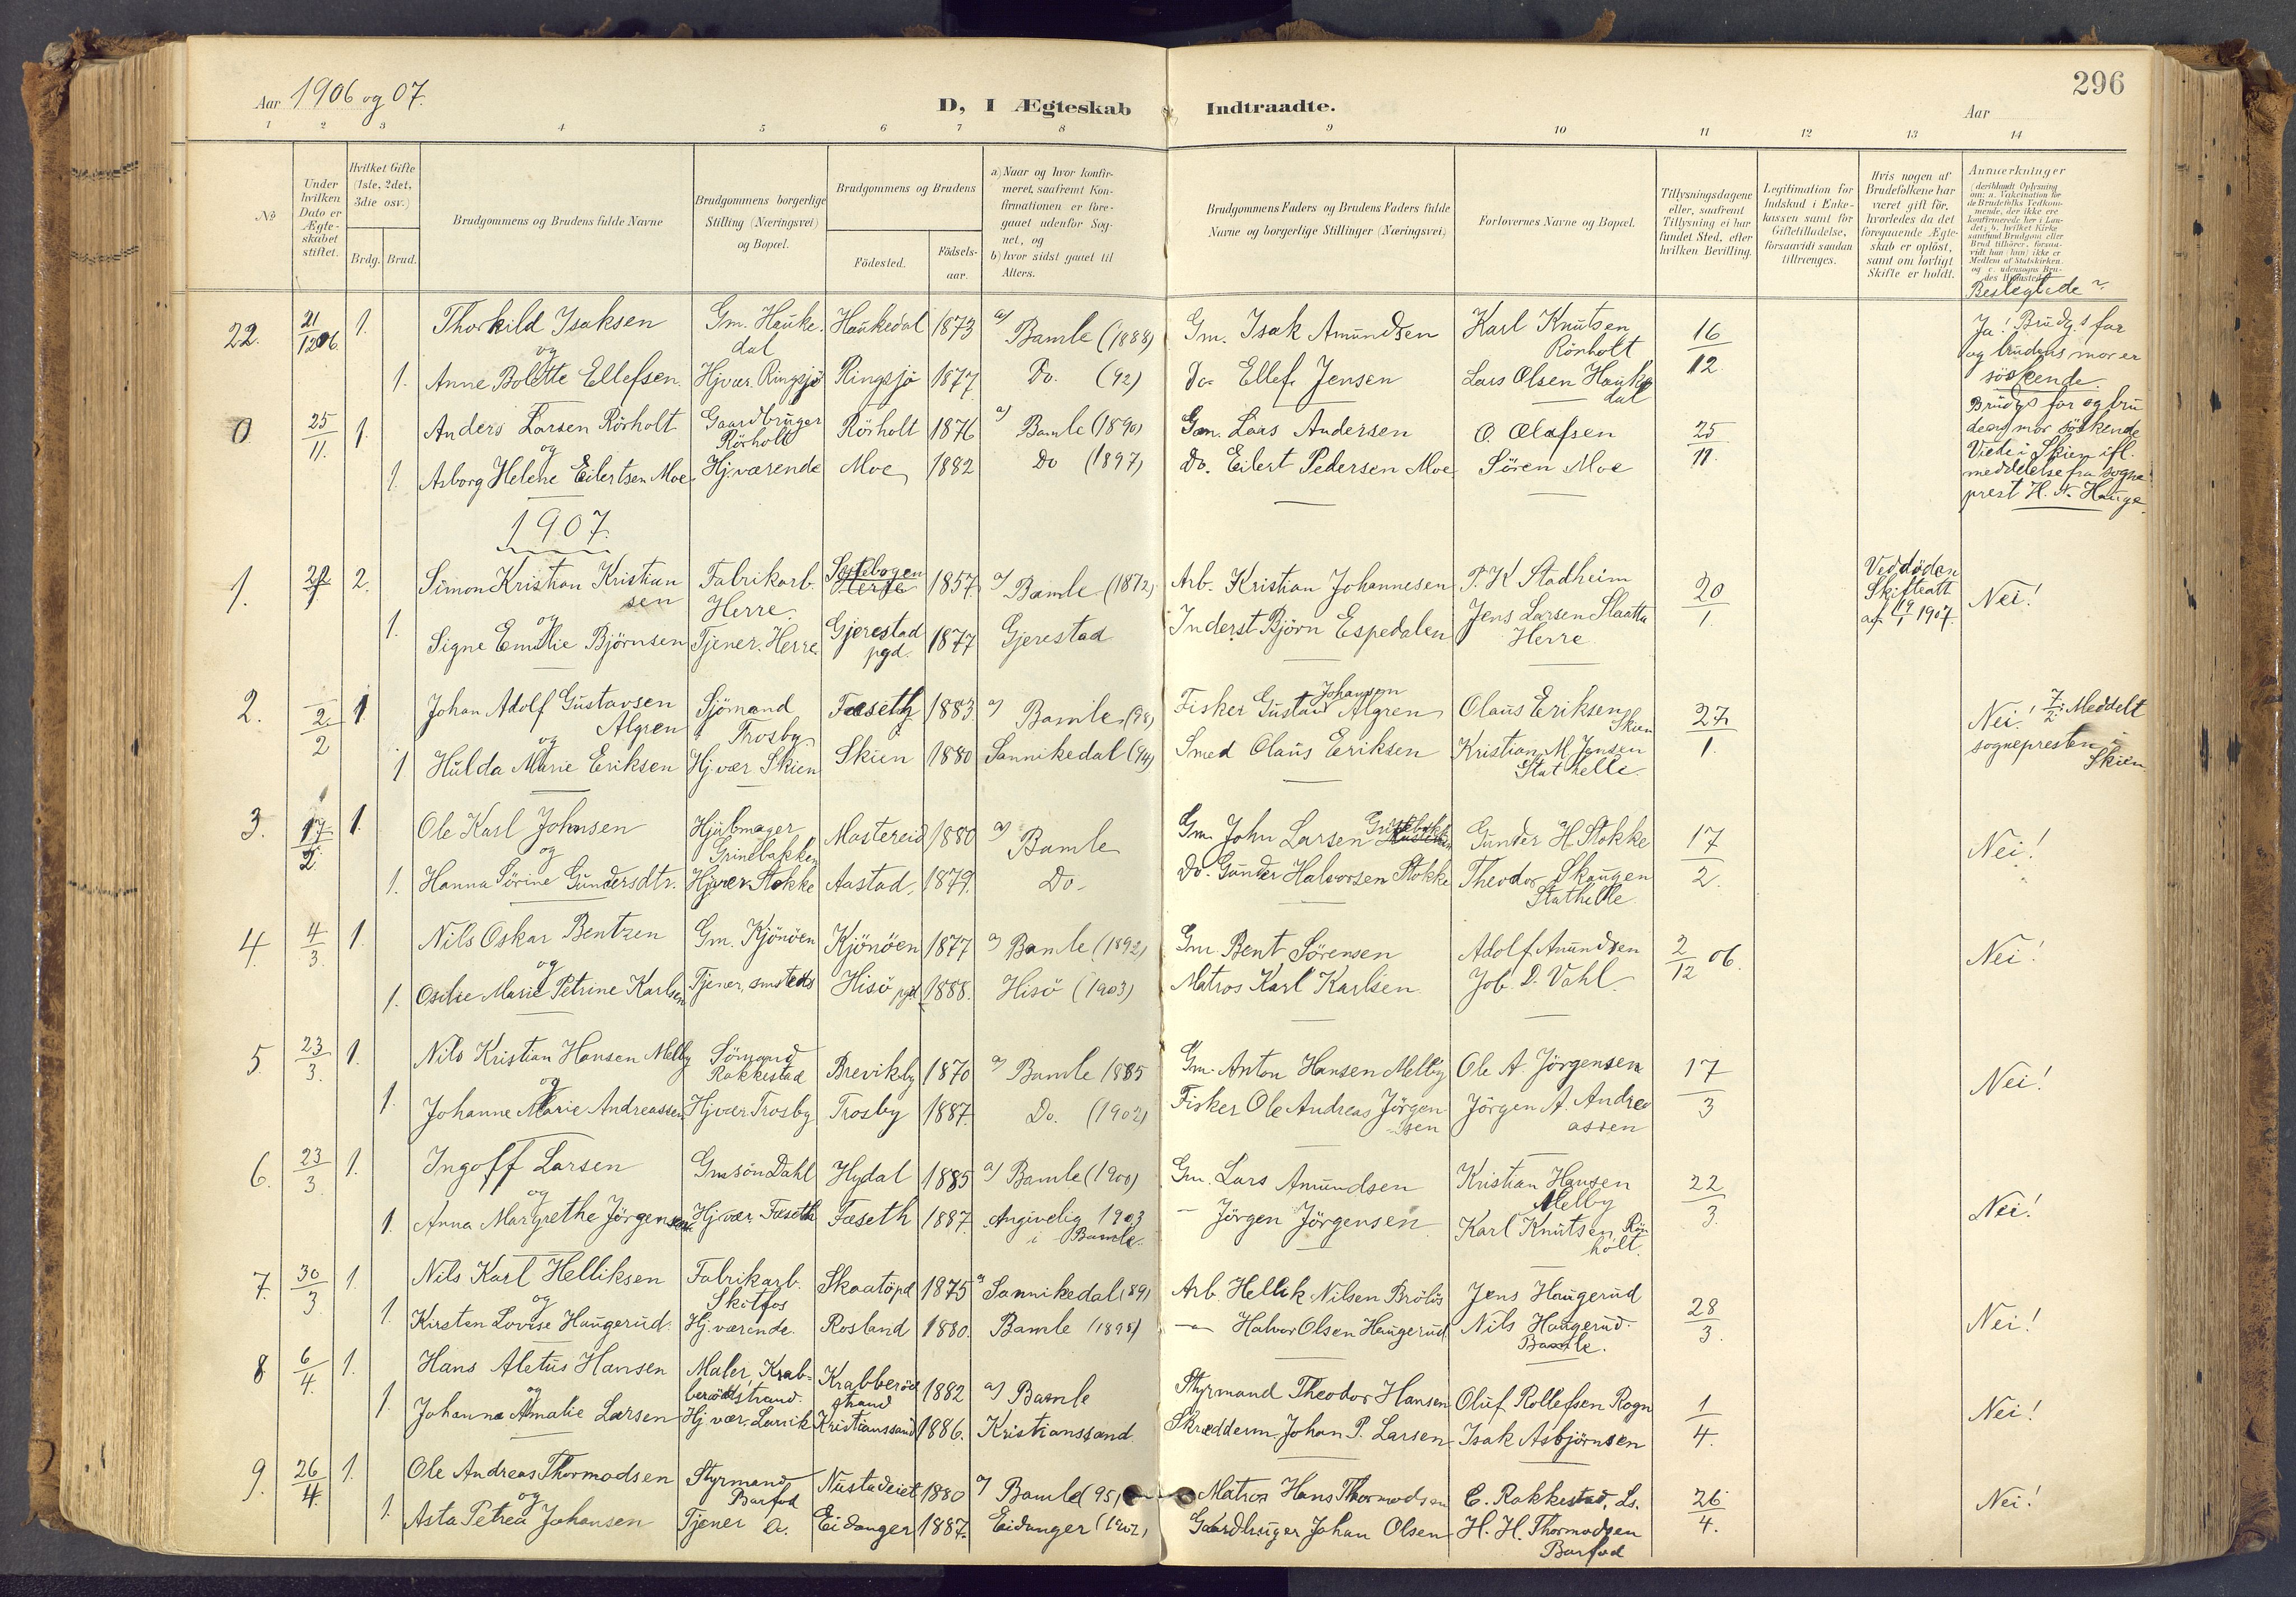 296
Aar 1906 og 07.
D, I Ægteskab Indtraadte.
Aar
1 2 3 4 5 6 7 8 9 10 11 12 13 14
No
Under hvilken Dato er Ægteskabet stiftet.
Hvilket Gifte (1ste, 2det, 3die osv.)
Brdg. Brud.
Brudgommens og Brudens fulde Navne
Brudgommens borgerlige Stilling (Næringsvei) og Bopæl.
Brudgommens og Brudens
Födested.
Födselsaar.
a) Naar og hvor konfirmeret, saafremt Konfirmationen er foregaaet udenfor Sognet, og
b) hvor sidst gaaet til Alters.
Brudgommens Faders og Brudens Faders fulde Navne og borgerlige Stillinger (Næringsvei)
Forlovernes Navne og Bopæl.
Tillysningsdagene eller, saafremt Tillysning ei har fundet Sted, efter hvilken Bevilling.
Legitimation for Indskud i Enkekassen samt for Giftetilladelse, forsaavidt saadan tiltrænges.
Hvis nogen af Brudefolkene har været gift før, hvorledes da det foregaaende Ægteskab er oplöst, samt om lovligt Skifte er holdt.
Anmerkninger
Beslegtede?
22. 21/12 06. 1. Thorkild Isaksen Gm. Haukedal Haukedal 1873 a) Bamle (1888) Gm. Isak Amundsen Karl Knutsen Rönholt 16/12 Ja! Brudg.s far
og
og brudens mor er
1. Anne Bolette Ellefsen. Hjvær. Ringsjö Ringsjö 1877 Do. (92) Do. Ellef Jensen Lars Olsen Haukedal söskende.
0 25/11. 1. Anders Larsen Rörholt Gaardbruger Rörholt Rörholt 1876 a) Bamle (1890) Gm. Lars Andersen O. Olafsen 25/11 Brudgs far og bru
og
dens mor söskende
1. Asborg Helene Eilertsen Moe. Hj. værende Moe 1882 Do (1897) Do. Eilert Pedersen Moe Sören Moe Viede i Skien ifl.
meddelelse fra sogne
prest H. N. Hauge.
1907.
1. 2. Simon Kristian Kristiansen Fabrikarb. Herre. 1857 a) Bamle (1872) Arb. Kristian Johannesen P. K Stadheim 20/1. Ved döden Skifteatt af 19/1 1907. Nei!
og
1. Signe Emilie Björnsen Tjener. Herre. Gjerestad pgd. 1877 Gjerestad Inderst Björn Espedalen Jens Larsen Slaatta Herre
2. 2/2 1 Johan Adolf Gustavsen Algren Sjömand Trosby Fæseth 1883 a) Bamle (98) Fisker Gustav Johansen Algren Olaus Eriksen Skien 27/1. Nei! 7/2: Meddelt
og
sognepresten i
1 Hulda Marie Eriksen Hj. vær Skien Skien 1880 Sannikedal (94) Smed Olaus Eriksen Kristian M Jensen Stathelle. Skien
3. 17/2. 1. Ole Karl Johnsen Hjulmager Grinebakken Mastereid 1880 a) Bamle Gm. John Larsen Gunder H. Stokke 17/2. Nei!
og
1. Hanna Sörine Gundersdtr. Hjvær. Stokke Aastad, 1879. Do. Do. Gunder Halvorsen Stokke Theodor Skaugen Stathelle.
4. 4/3. 1. Nils Oskar Bentzen Gm. Kjönöen Kjönöen 1877 a) Bamle (1892) Gm. Bent Sörensen Adolf Amundsen 2/12 06. Nei!
og
1. Osilie Marie Petrine Karlsen Tjener, smsteds Hisö pgd 1888. Hisö (1903) Matros Karl Karlsen. Job. D. Vahl
5. 23/3. 1. Nils Kristian Hansen Melby Sömand Rakkestad Brevik by 1870 a) Bamle 1885 Gm. Anton Hansen Melby Ole A. Jörgensen 17/3 Nei!
og
1. Johanne Marie Andreassen Hjvær. Trosby Trosby 1887. Do. (1902) Fisker Ole Andreas Jörgensen Jörgen A. Andreassen
6. 23/3. 1. Ingolf Larsen Gmsön Dahl Hydal 1885 a) Bamle (1900) Gm. Lars Amundsen Kristian Hansen Melby 22/3. Nei!
og
1. Anna Margrethe Jörgensen Hj. vær. Fæseth Fæseth 1887. Angivelig 1903 i Bamle. — Jörgen Jörgensen Karl Knutsen, Rönholt.
7. 30/3. 1. Nils Karl Helliksen Fabrikarb. Skitfos Skaatöpd 1875 a) Sannikedal (89) Arb. Hellik Nilsen Brölös Jens Haugerud 28/3. Nei!
og
1. Kirsten Lovise Haugerud. Hj. værende. Rosland 1880. Bamle (1895) — Halvor Olsen Haugerud Nils Haugerud. Bamle.
8 6/4. 1. Hans Aletus Hansen Maler, Krabberödstrand. Krabberöd strand 1882 a) Bamle Styrmand Theodor Hansen Oluf Rollefsen Rogn 1/4. Nei!
og
1. Johanna Amalie Larsen Hj. vær. Larvik Kristianssand 1886. Kristianssand Skræddermr. Johan P. Larsen Isak Asbjörnsen
9. 26/4. 1. Ole Andreas Thormodsen Styrmand Barfod Nustadeiet 1880 a) Bamle (95) Matros Hans Thormodsen C. Rakkestad, Ls. 26/4. Nei!
og
1. Asta Petrea Johansen Tjener Eidanger 1887. Eidanger (1902) Gaardbruger Johan Olsen H. H. Thormodsen Barfod